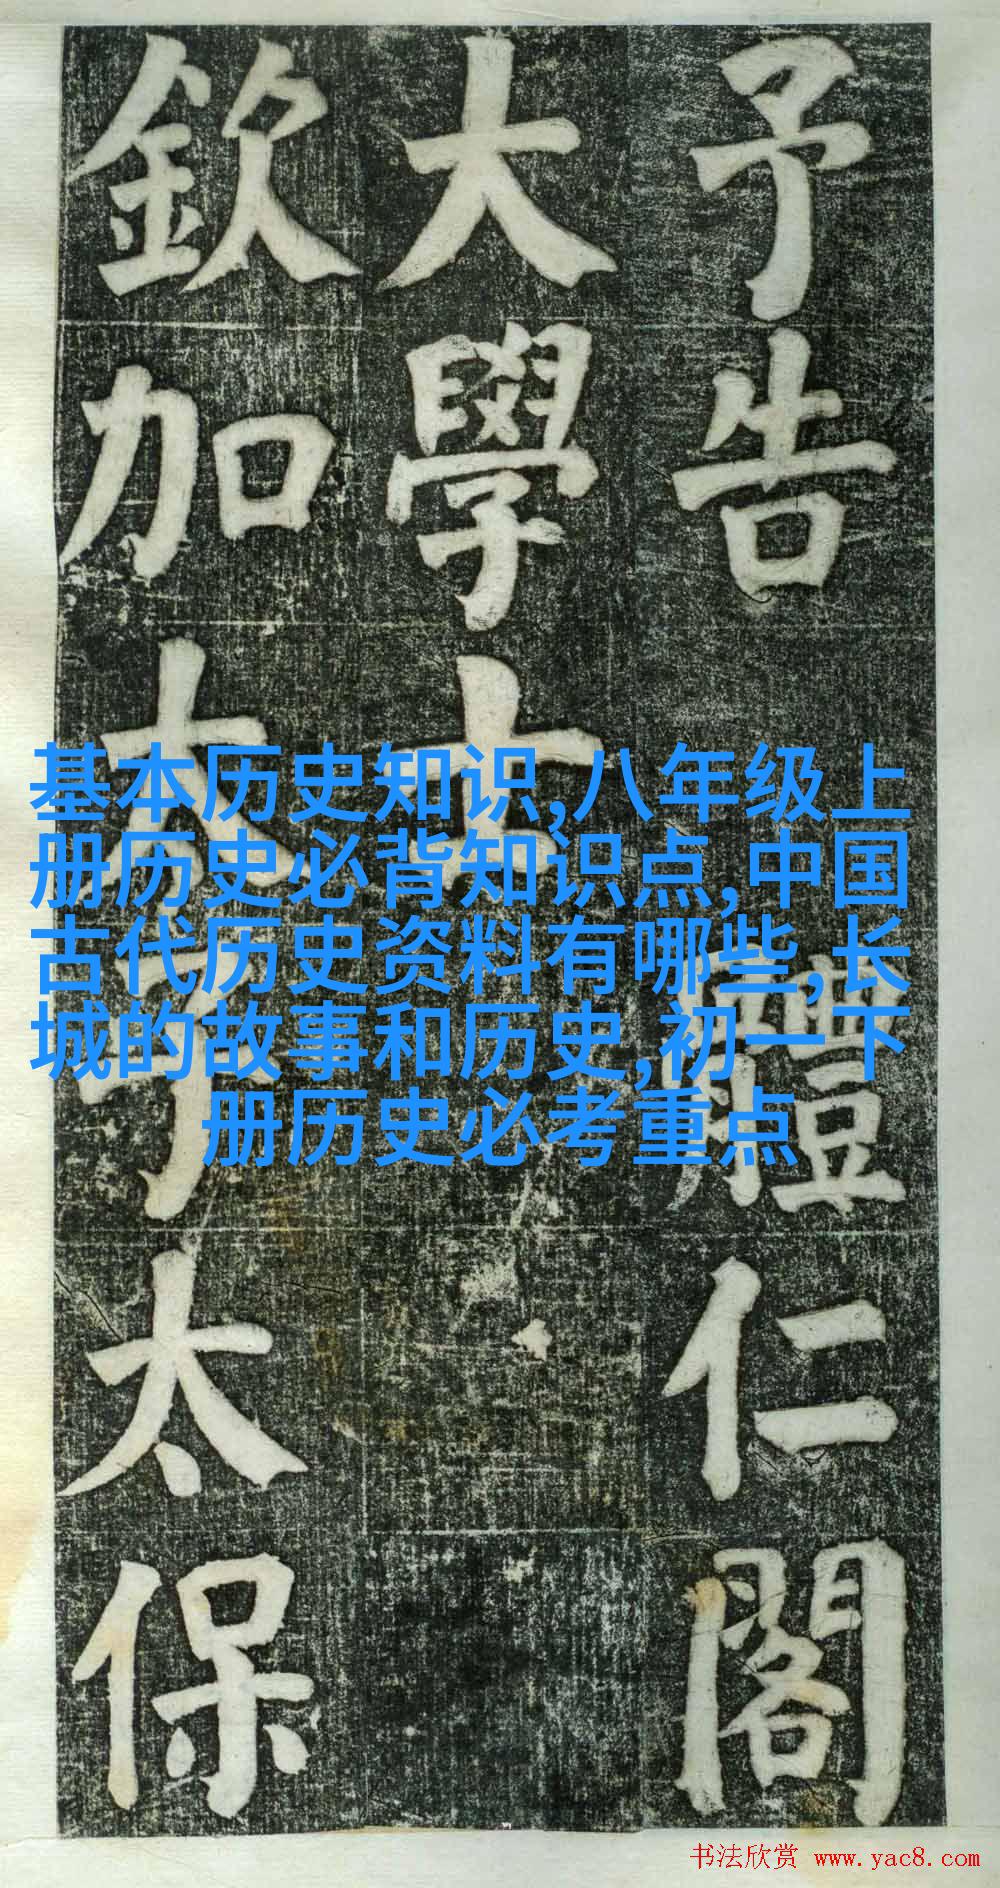 予告體仁閣
大學士
欽加太子太保
基本历史知识,八年级上
册历史必背知识点,中国
古代历史资料有哪些,长
城的故事和历史,初一下
册历史必考重点
书法欣赏 www.yac8.com